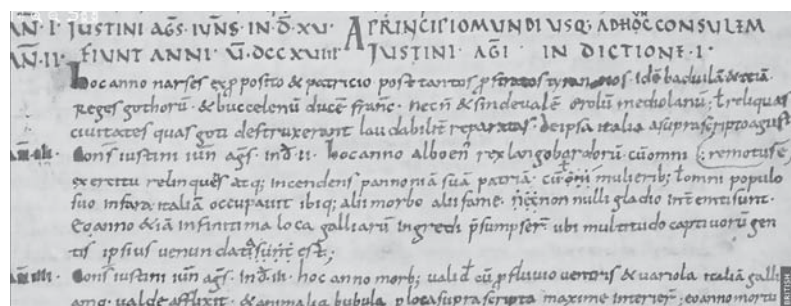 AN̄· I· IUSTINI AG̃S· IUÑS· IN·D̄· XV· A PRINCIPIO MUNDI USQ· AD HOC CONSULEM
AN̄· II· FIUNT ANNI· V̄· DCCXVIIII· IUSTINI· AG̃I· IN DICTIONE· I·
hoc anno narses ex p̄posito & patricio post tantos p̄stratos tyrannos· idē baduilā & teiā
reges gothorū· & buccelenū ducē franc̄· necñ & sindevalē erolū mediolanū; ł reliquas
ciuitates quas goti destruxerant laudabilit̄ reparatas· de ipsa italia a suprascripto agust̄
cons̄ iustini iuñ ag̃s· ind̄· II· hoc anno alboen̄ rex langobardorū· cū omni remotus ē
exercitu relinquēs atq; incendens pannoniā suā patriā· cū om̄i mulierib; ł omni populo
suo in fara italiā occupauit ibiq; alii morbo alii fame· non nulli gladio int̄empti sunt·
eo anno & iā in finitima loca galliarū ingredi p̄sumpser̄ ubi multitudo captiuorū gen
tis ipsius uenundati est;
AN̄· IIII· cons̄ iustini iuñ ag̃s· ind̄· III· hoc anno morb; valid̄ cū p̄fluuio uentris & variola italiā galli
amq· ualde afflixit· & animalia bubula p̄ loca suprascripta maxime interier̄· eo anno mortu